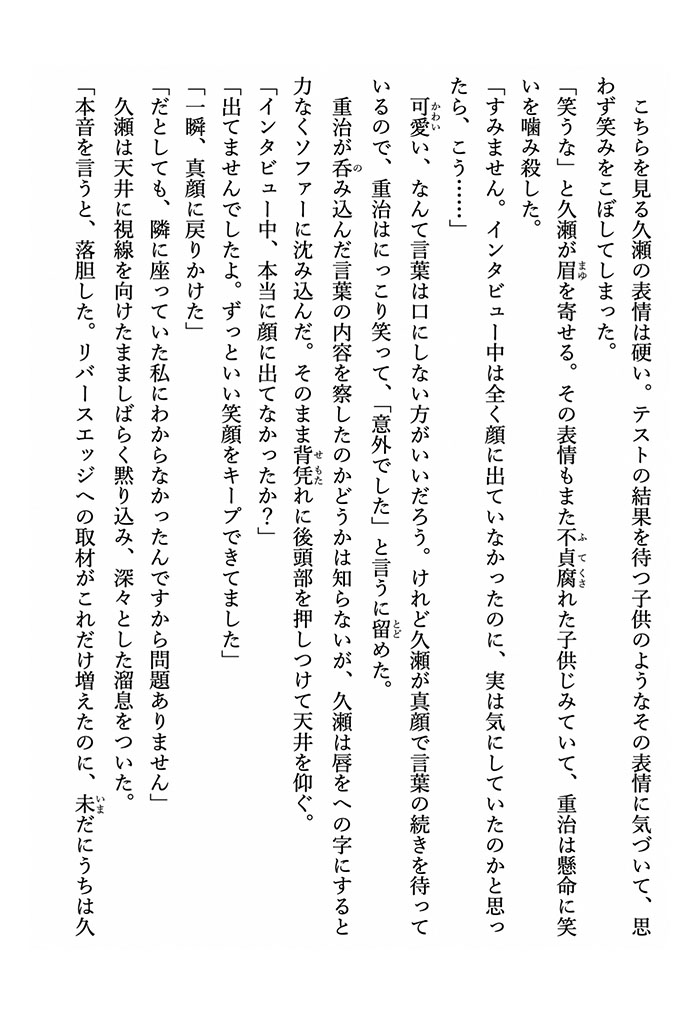 こちらを見る久瀬の表情は硬い。テストの結果を待つ子供のようなその表情に気づいて、思
わず笑みをこぼしてしまった。
「笑うな」と久瀬が眉を寄せる。その表情もまた不貞腐れた子供じみていて、重治は懸命に笑
いを噛み殺した。
「すみません。インタビュー中は全く顔に出ていなかったのに、実は気にしていたのかと思っ
たら、こう……」
可愛い、なんて言葉は口にしない方がいいだろう。けれど久瀬が真顔で言葉の続きを待って
いるので、重治はにっこり笑って、「意外でした」と言うに留めた。
重治が呑み込んだ言葉の内容を察したのかどうかは知らないが、久瀬は唇をへの字にすると
力なくソファーに沈み込んだ。そのまま背凭れに後頭部を押しつけて天井を仰ぐ。
「インタビュー中、本当に顔に出てなかったか？」
「出てませんでしたよ。ずっといい笑顔をキープできてました」
「一瞬、真顔に戻りかけた」
「だとしても、隣に座っていた私にわからなかったんですから問題ありません」
久瀬は天井に視線を向けたまましばらく黙り込み、深々とした溜息をついた。
「本音を言うと、落胆した。リバースエッジへの取材がこれだけ増えたのに、未だにうちは久